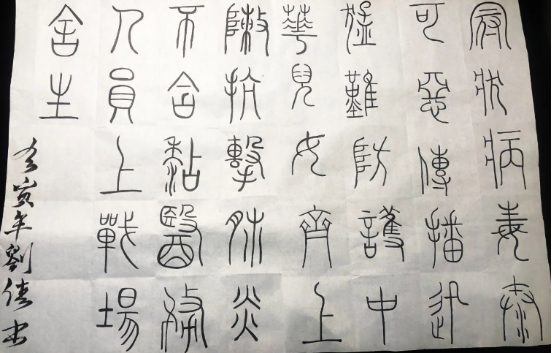 冠狀病毒
可惡傳播迅
猛難防護中
華兒女齊上
敶抗擊肺炎
不含黏醫務
人員上戰場
舍生
寅年劉佳书